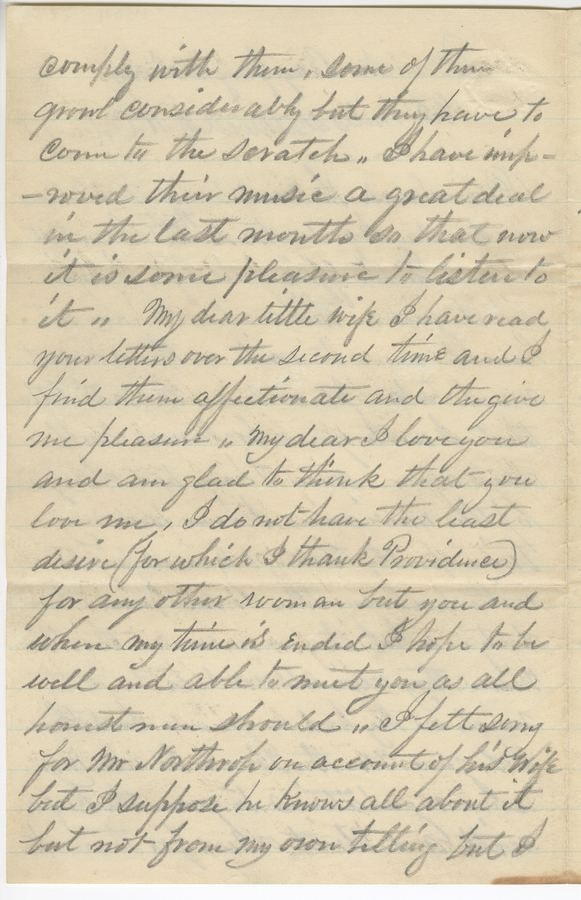 comply with them, some of them
growl considerably but they have to
come to the scratch „ I have imp-
-roved their music a great deal
in the last month so that now
it is some pleasure to listen to
it „ My dear little wife I have read
your letters over the second time and I
find them affectionate and the give
me pleasure „ My dear I love you
and am glad to think that you
love me, I do not have the least
desire (for which I thank Providence)
for any other woman but you and
when my time is ended I hope to be
well and able to meet you as all
honest men should „ I felt sorry
for Mr Northrop on account of his Wife
but I suppose he knows all about it
but not from my own telling but I